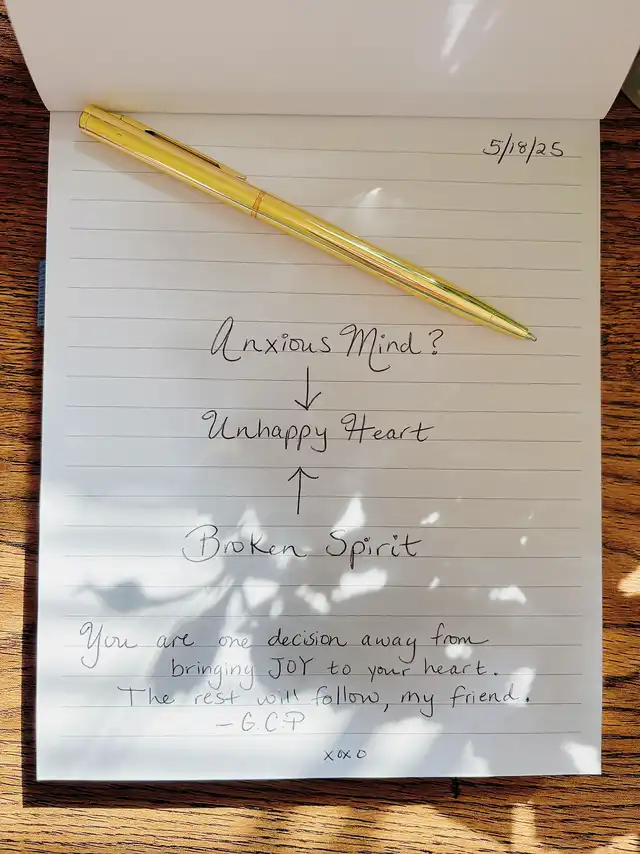 5/18/25
Anxious Mind?
↓
Unhappy Heart
↑
Broken Spirit
You are one decision away from
bringing JOY to your heart.
The rest will follow, my friend.
- G.C.P
xoxo